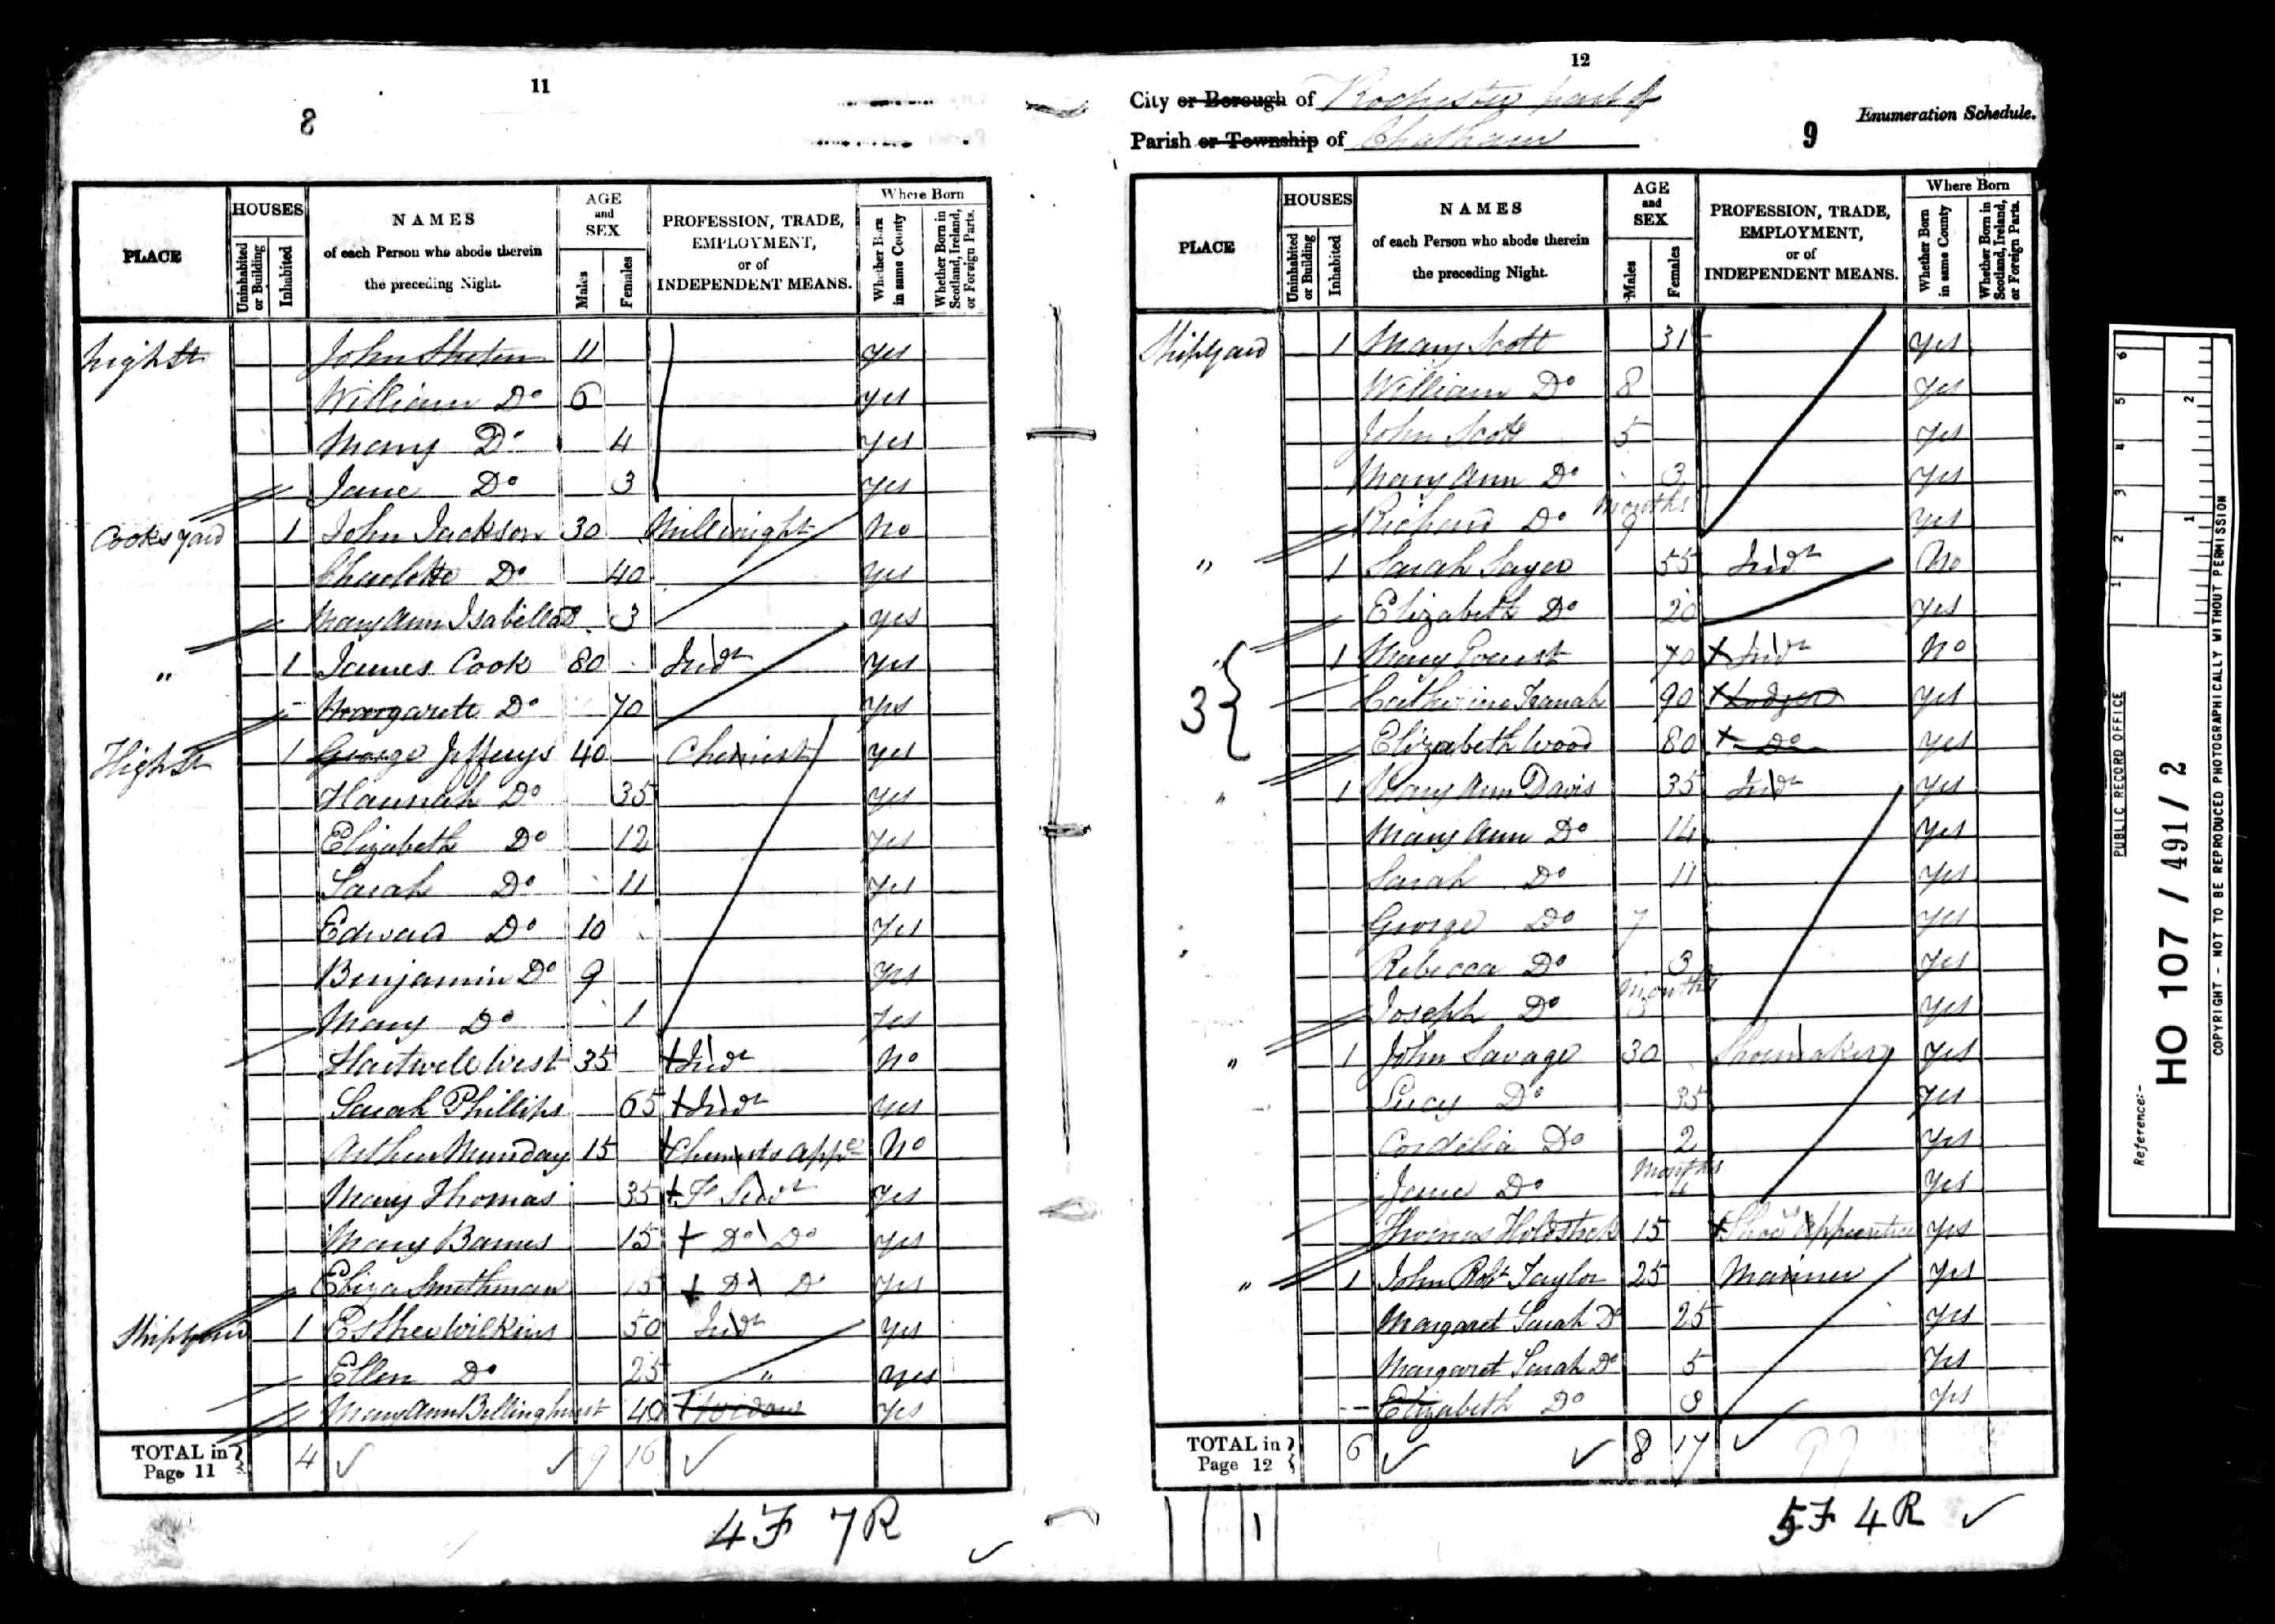 11
8
PLACE
HOUSES
Uninhabited or Building
Inhabited
NAMES
of each Person who abode therein
the preceding Night.
AGE
and
SEX
Males
Females
PROFESSION, TRADE,
EMPLOYMENT,
or of
INDEPENDENT MEANS.
Where Born
Whether Born in same County
Whether Born in Scotland, Ireland, or Foreign Parts.
High St John 11 Yes
William Do 6 Yes
Mary Do 4 Yes
Jane Do 3 Yes
Cooks Yard 1 John Jackson 30 Millwright No
Charlotte Do 40 Yes
Mary Ann Isabella Do 3 Yes
" 1 James Cook 80 Indt Yes
Margarete Do 70 Yes
High St 1 George Jefferys 40 Chemist Yes
Hannah Do 35 Yes
Elizabeth Do 12 Yes
Sarah Do 11 Yes
Edward Do 10 Yes
Benjamin Do 9 Yes
Mary Do 1 Yes
Hartwell West 35 + Indt No
Sarah Phillips 65 + Indt Yes
Arthur Munday 15 + Chemists appe No
Mary Thomas 35 + F Servt Yes
Mary Barnes 15 + Do Do Yes
Eliza Smithman 15 + Do Do Yes
Shipyard 1 Esther Wilkins 50 Indt Yes
Ellen Do 25 " Yes
Mary Ann Billinghurst 40 + Widow Yes
TOTAL in Page 11 } 4 9 16
4F 7R
12
City or Borough of Rochester part of
Parish or Township of Chatham
Enumeration Schedule.
9
PLACE
HOUSES
Uninhabited or Building
Inhabited
NAMES
of each Person who abode therein
the preceding Night.
AGE
and
SEX
Males
Females
PROFESSION, TRADE,
EMPLOYMENT,
or of
INDEPENDENT MEANS.
Where Born
Whether Born in same County
Whether Born in Scotland, Ireland, or Foreign Parts.
Shipyard 1 Mary Scott 31 Yes
William Do 8 Yes
John Scott 5 Yes
Mary Ann Do 3 Yes
Richard Do Months 9 Yes
" 1 Sarah Sayer 55 Indt No
Elizabeth Do 20 Yes
" 1 Mary 70 + Indt No
3 { Catherine 90 + Lodger Yes
Elizabeth Wood 80 + Do Yes
" 1 Mary Ann Davis 35 Indt Yes
Mary Ann Do 14 Yes
Sarah Do 11 Yes
George Do 7 Yes
Rebecca Do 3 Yes
Joseph Do Months Yes
" 1 John Savage 30 Shoemaker Yes
Lucy Do 35 Yes
Cordelia Do 2 Yes
Jane Do Months 4 Yes
Thomas Holdstock 15 + Shoe Apprentice Yes
" 1 John Robt Taylor 25 Mariner Yes
Margaret Sarah Do 25 Yes
Margaret Sarah Do 5 Yes
Elizabeth Do 3 Yes
TOTAL in Page 12 } 6 8 17
5F 4R
PUBLIC RECORD OFFICE
1 2 3 4 5 6
1 2
Reference:-
HO 107 / 491 / 2
COPYRIGHT - NOT TO BE REPRODUCED PHOTOGRAPHICALLY WITHOUT PERMISSION